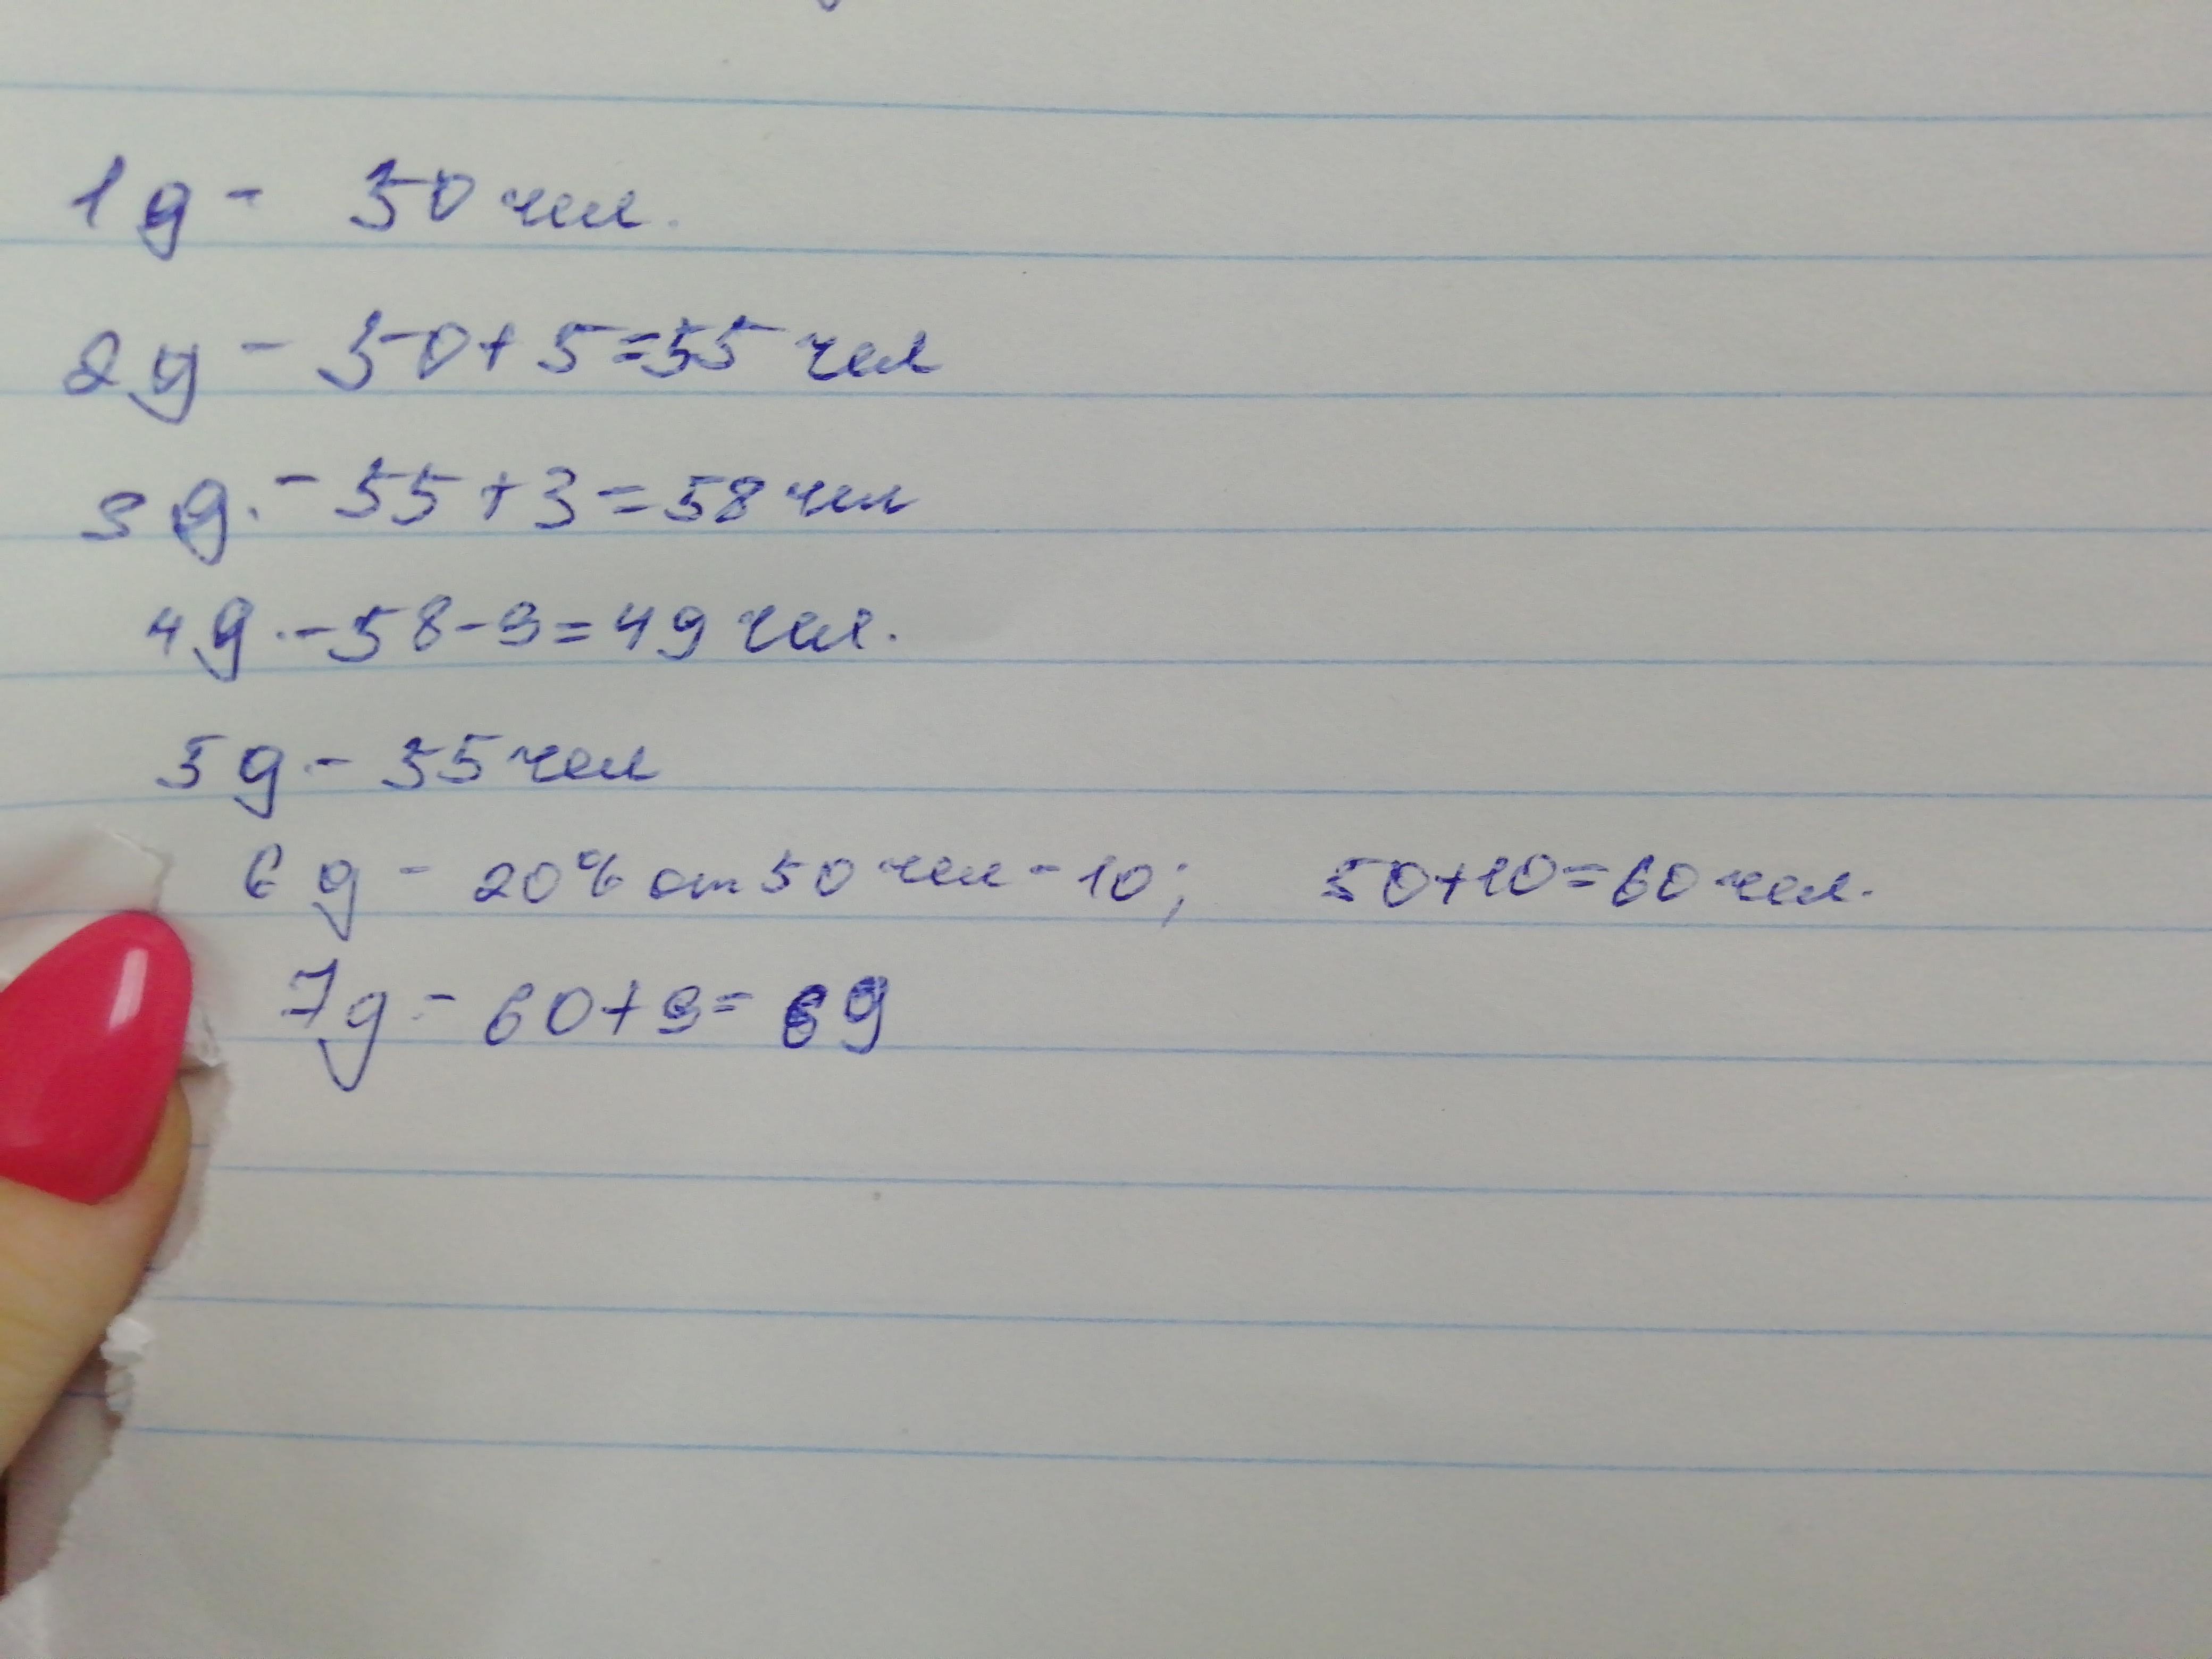 1д - 50 чел.
2д - 50+5=55 чел
3д. - 55+3=58 чел
4д. - 58-9=49 чел.
5д. - 55 чел
6д - 20% от 50 чел - 10; 50+10=60 чел.
7д. - 60+9= 69